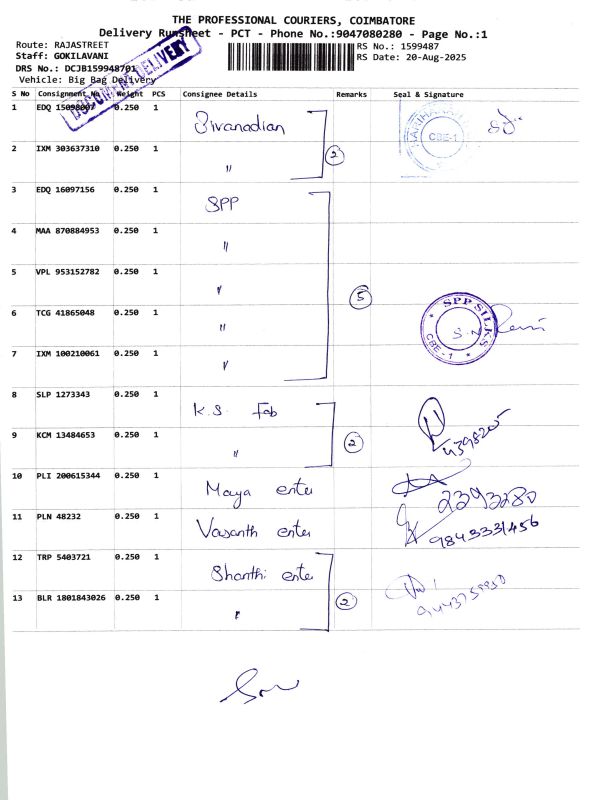 THE PROFESSIONAL COURIERS, COIMBATORE
Delivery Runsheet - PCT - Phone No.:9047080280 - Page No.:1
Route: RAJASTREET
RS No.: 1599487
Staff: GOKILAVANI
RS Date: 20-Aug-2025
DRS No.: DCJB159948701
Vehicle: Big Bag Delivery
DOCUMENT DELIVERY
S No Consignment No Weight PCS Consignee Details Remarks Seal & Signature
1 EDQ 0.250 1 CBE-1
2 IXM 303637310 0.250 1 〃 2
3 EDQ 16097156 0.250 1 SPP
4 MAA 870884953 0.250 1 〃
5 VPL 953152782 0.250 1 〃 5
6 TCG 41865048 0.250 1 〃 SPP SILKS CBE-1
7 IXM 100210061 0.250 1 〃
8 SLP 1273343 0.250 1 K.S. Fab
9 KCM 13484653 0.250 1 〃 2
10 PLI 200615344 0.250 1 Maya enter 2393280
11 PLN 48232 0.250 1 Vasanth enter 9843331456
12 TRP 5403721 0.250 1 Shanthi enter
13 BLR 1801843026 0.250 1 〃 2